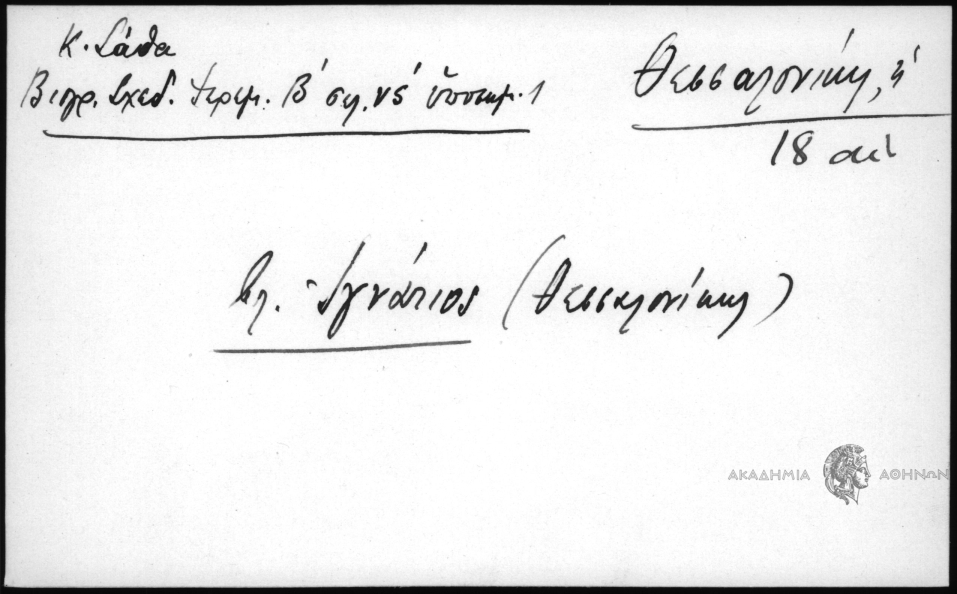 Κ. Σάθα
Βιογρ. Σχεδ. Ἱερεμ. Β΄ σελ. νς΄ ὑποσημ. 1
Θεσσαλονίκη, ἡ
18 αἰ
βλ. Ἰγνάτιος (Θεσσαλονίκης)
ΑΚΑΔΗΜΙΑ ΑΘΗΝΩΝ